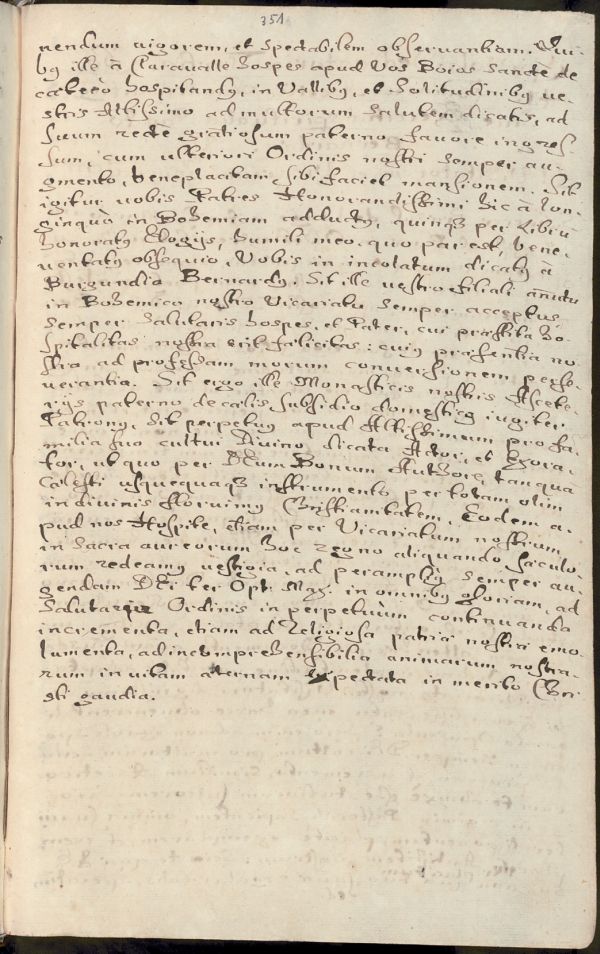 351
nendum vigorem, et spectabilem observantiam. Qui-
bꝰ ille à Claravalle hospes apud Vos Boios sanctè de
caeterò hospitandꝰ, in Vallibꝰ, et solitudinibꝰ ve-
stris Altissimo ad multorum salutem dicatis, ad
suum rectè gratiosum paterno favore ingres-
sum, cum ulteriori Ordinis nostri semper au-
gmento, beneplacitam sibi faciet mansionem. Sit
igitur vobis Patres Honorandissimi hic à lon-
ginquò in Bohemiam adductꝰ, quinqꝫ per Librũ
honoratꝰ Elogijs, humili meo, quo par est, bene-
ventatꝰ obsequio, Vobis in incolatum dicatꝰ à
Burgundia Bernardꝰ. Sit ille vestro filiali affectu
in Bohemico nostro Vicariatu semper acceptus,
semper salutaris hospes, et Pater, cui praestita ho-
spitalitas nostra erit felicitas: cuiꝰ praesentia no-
stra ad professam morum conversionem perse-
verantia. Sit ergo ille Monasticis nostris Ascete-
rijs paterno de caelis subsidio domesticꝰ iugiter
Patronꝰ, sit perpetuꝰ apud Altissimum pro fa-
milia suo cultui Divino dicata Actor, et Exora-
tor, ut quo per DEum Bonum Authore, tanquã
caelesti usquequaqꝫ instrumento per totam olim
in divinis floruimꝰ Christianitatem. Eodem a-
pud nos Hospite, etiam per Vicariatum nostrum
in sacra aureorum hoc regno aliquando saeculo-
rum redeamꝰ vestigia, ad perampliꝰ semper au-
gendam DEi ter Opt: Max: in omnibꝰ gloriam, ad
salutaria Ordinis in perpetuùm continuanda
incrementa, etiam ad religiosa patriae nostrae emo-
lumenta, ad incomprehensibilia animarum nostra-
rum in vitam aeternam expectata in merito Chri-
sti gaudia.